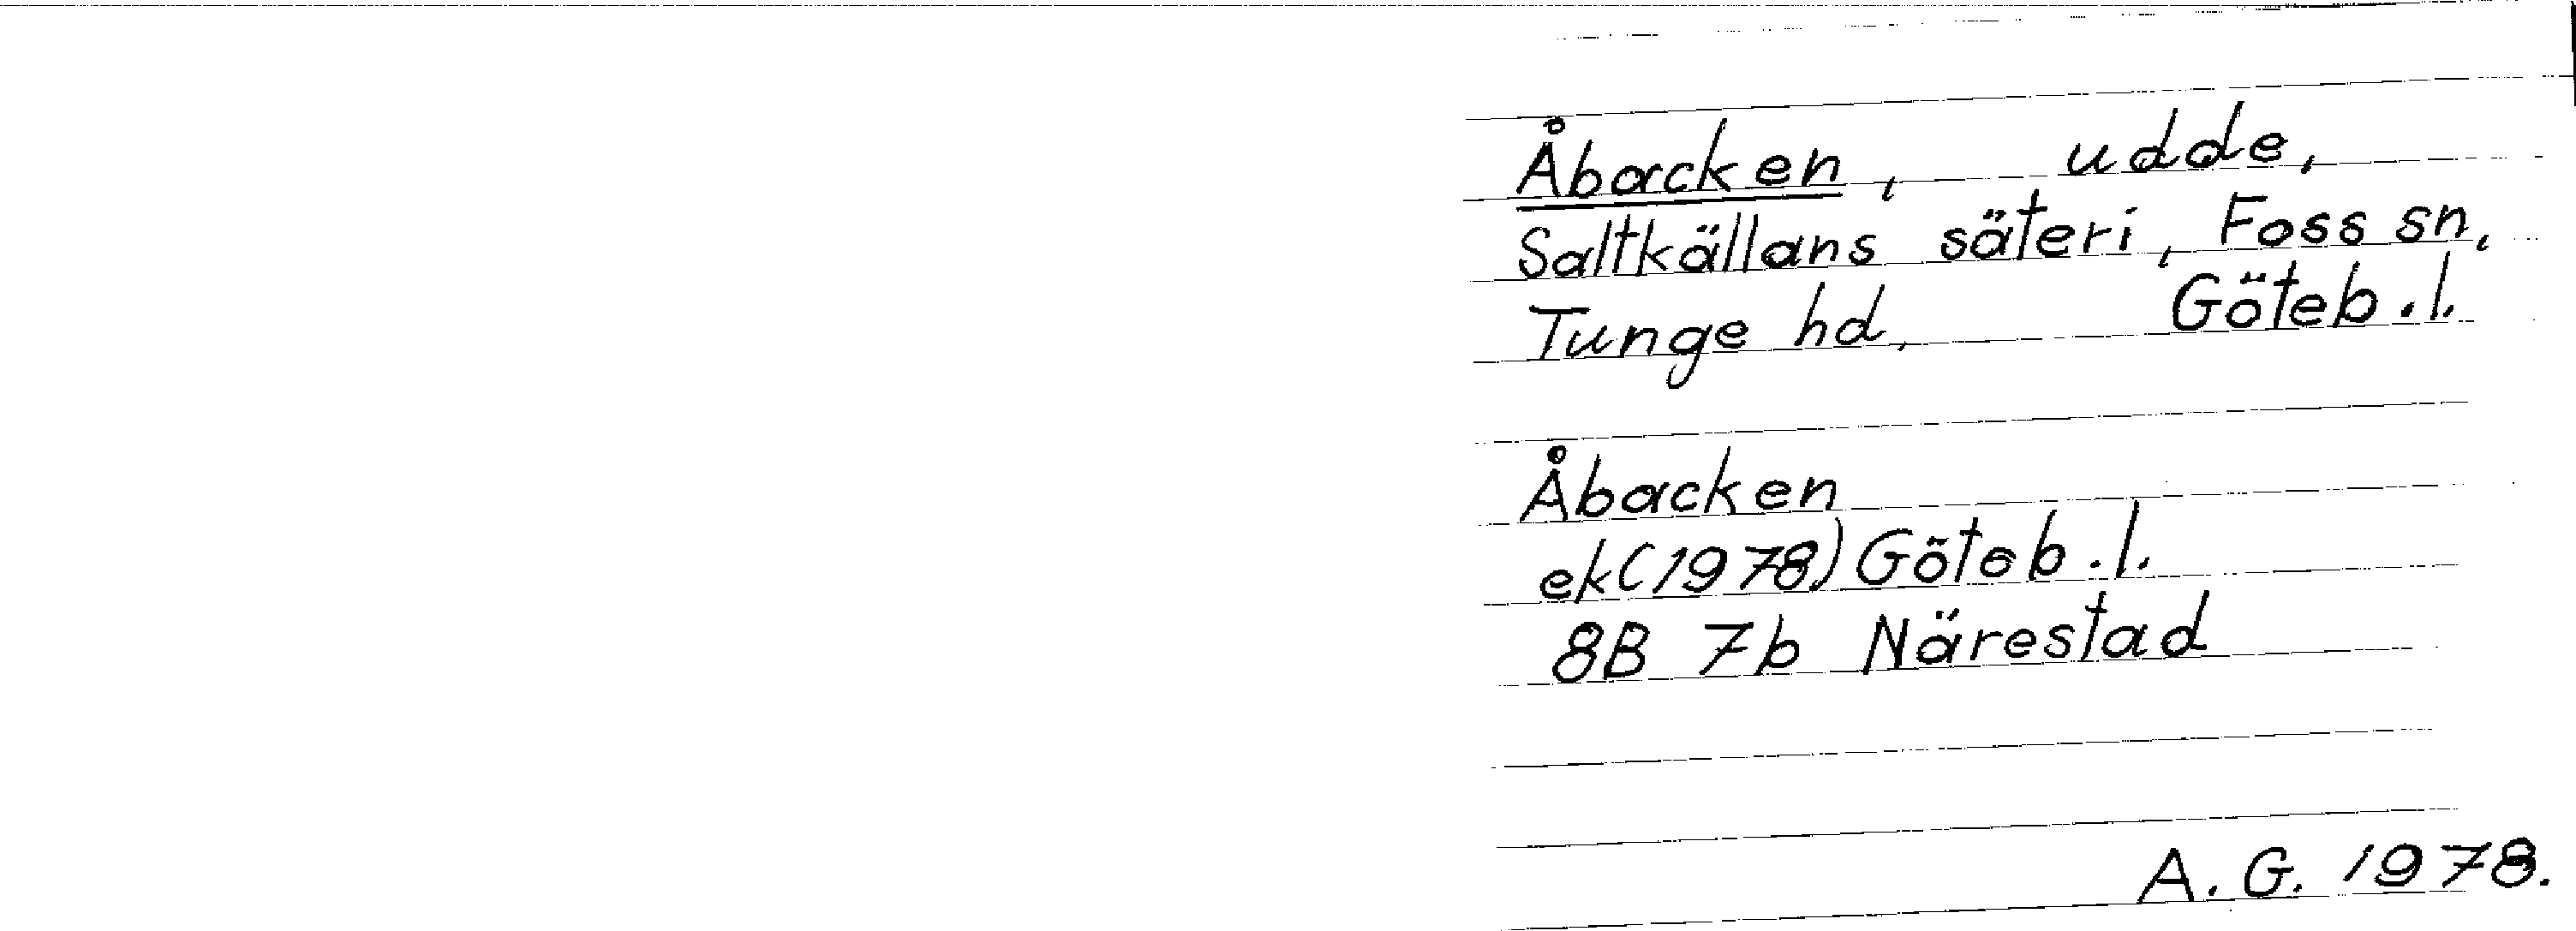 Åbacken, udde,
Saltkällans säteri, Foss sn,
Tunge hd, Göteb.l.
Åbacken
ek(1978) Göteb.l.
8B 7b Närestad
A.G. 1978.